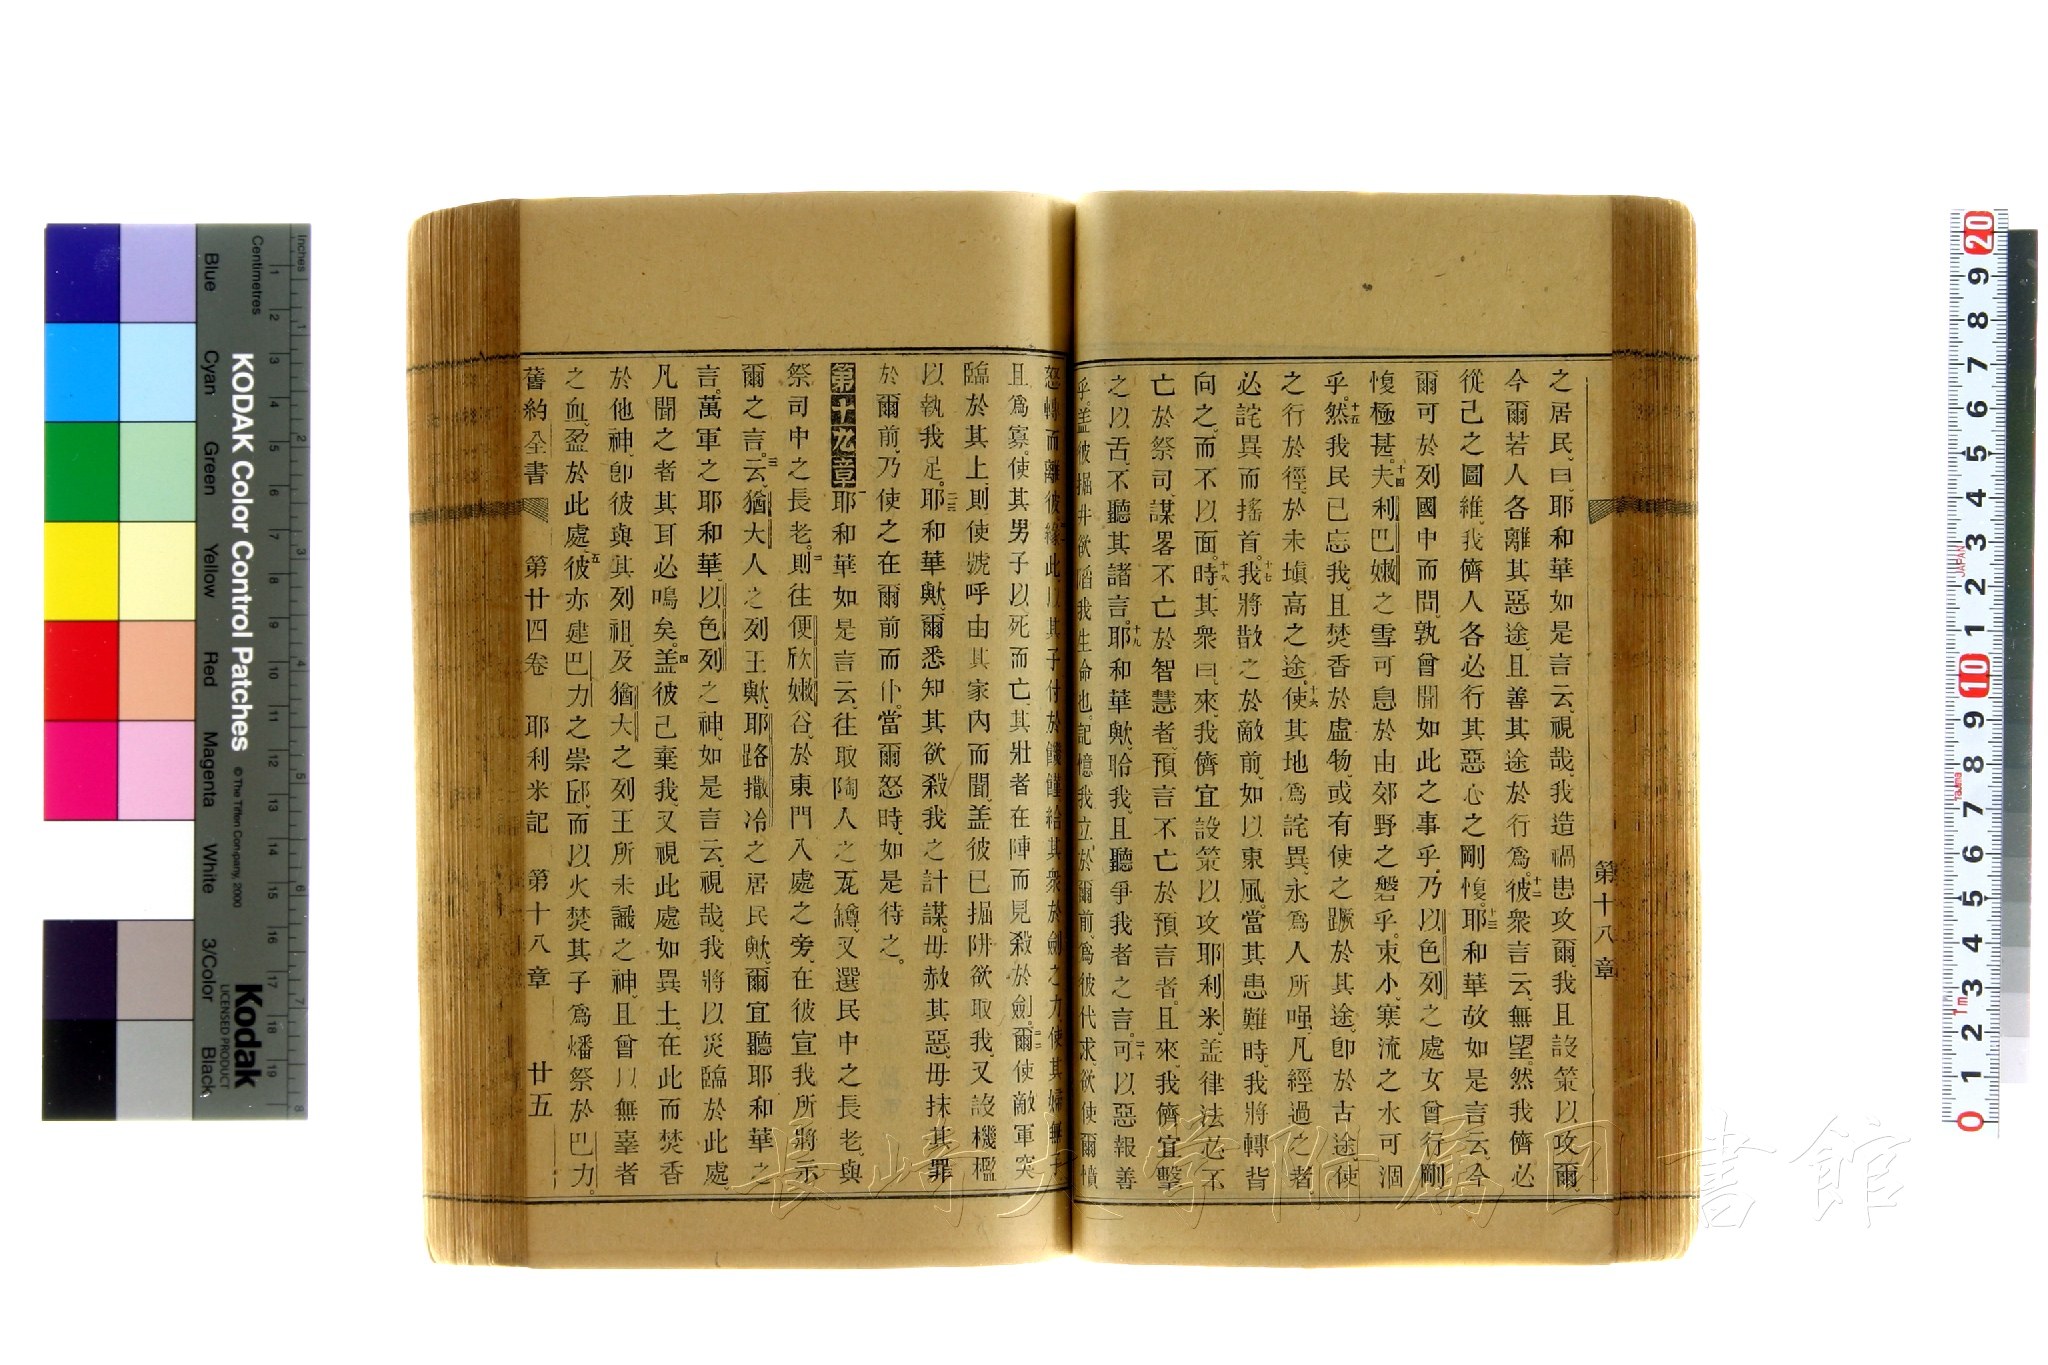 第十八章
之居民、曰、耶和華如是言云、視哉、我造禍患攻爾、我且設策以攻爾、
今爾若人各離其惡途、且善其途於行爲。十二彼衆言云、無望。然我儕必
從己之圖維、我儕人各必行其惡心之剛愎。十三耶和華故如是言云、今
爾可於列國中而問、孰曾聞如此之事乎、乃以色列之處女曾行剛
愎極甚。十四夫利巴嫩之雪可息於由郊野之磐乎、東小、寒流之水可涸
乎。十五然我民已忘我、且焚香於虛物、或有使之蹶於其途、卽於古途、使
之行於徑、於未塡高之途。十六使其地爲詫異、永爲人所嗤、凡經過之者、
必詫異而搖首。十七我將散之於敵前、如以東風當其患難時、我將轉背
向之、而不以面。十八時其衆曰、來、我儕宜設策以攻耶利米、盖律法必不
亡於祭司、謀畧不亡於智慧者、預言不亡於預言者。且來、我儕宜擊
之以舌、不聽其諸言。十九耶和華歟、聆我、且聽爭我者之言。二十可以惡報善
乎。盖彼掘井欲陷我生命也。記憶我立於爾前、爲彼代求、欲使爾憤
怒轉而離彼。緣此、以其子付於饑饉、給其衆於劍之力、使其婦無子
且爲寡。使其男子以死而亡、其壯者在陣而見殺於劍。二二爾使敵軍突
臨於其上、則使號呼由其家內而聞、盖彼已掘阱欲取我、又設機檻
以執我足。二三耶和華歟、爾悉知其欲殺我之計謀。毋赦其惡、毋抹其罪
於爾前、乃使之在爾前而仆。當爾怒時、如是待之。
第十九章 一耶和華如是言云、往取陶人之瓦罇、又選民中之長老、與
祭司中之長老。二則往便欣嫩谷、於東門入處之旁、在彼宣我所將示
爾之言。三云、猶大人之列王歟、耶路撒冷之居民歟、爾宜聽耶和華之
言。萬軍之耶和華、以色列之神、如是言云、視哉、我將以災臨於此處、
凡聞之者其耳必鳴矣。四盖彼已棄我、又視此處如異土、在此而焚香
於他神、卽彼與其列祖、及猶大之列王所未識之神、且曾以無辜者
之血、盈於此處、五彼亦建巴力之崇邱、而以火焚其子爲燔祭於巴力。
舊約全書 第廿四卷 耶利米記 第十八章 廿五
KODAK Color Control Patches
© The Tiffen Company, 2000
Kodak
LICENSED PRODUCT
Inches
Centimetres
Blue Cyan Green Yellow Red Magenta White 3/Color Black
長崎大学附属図書館